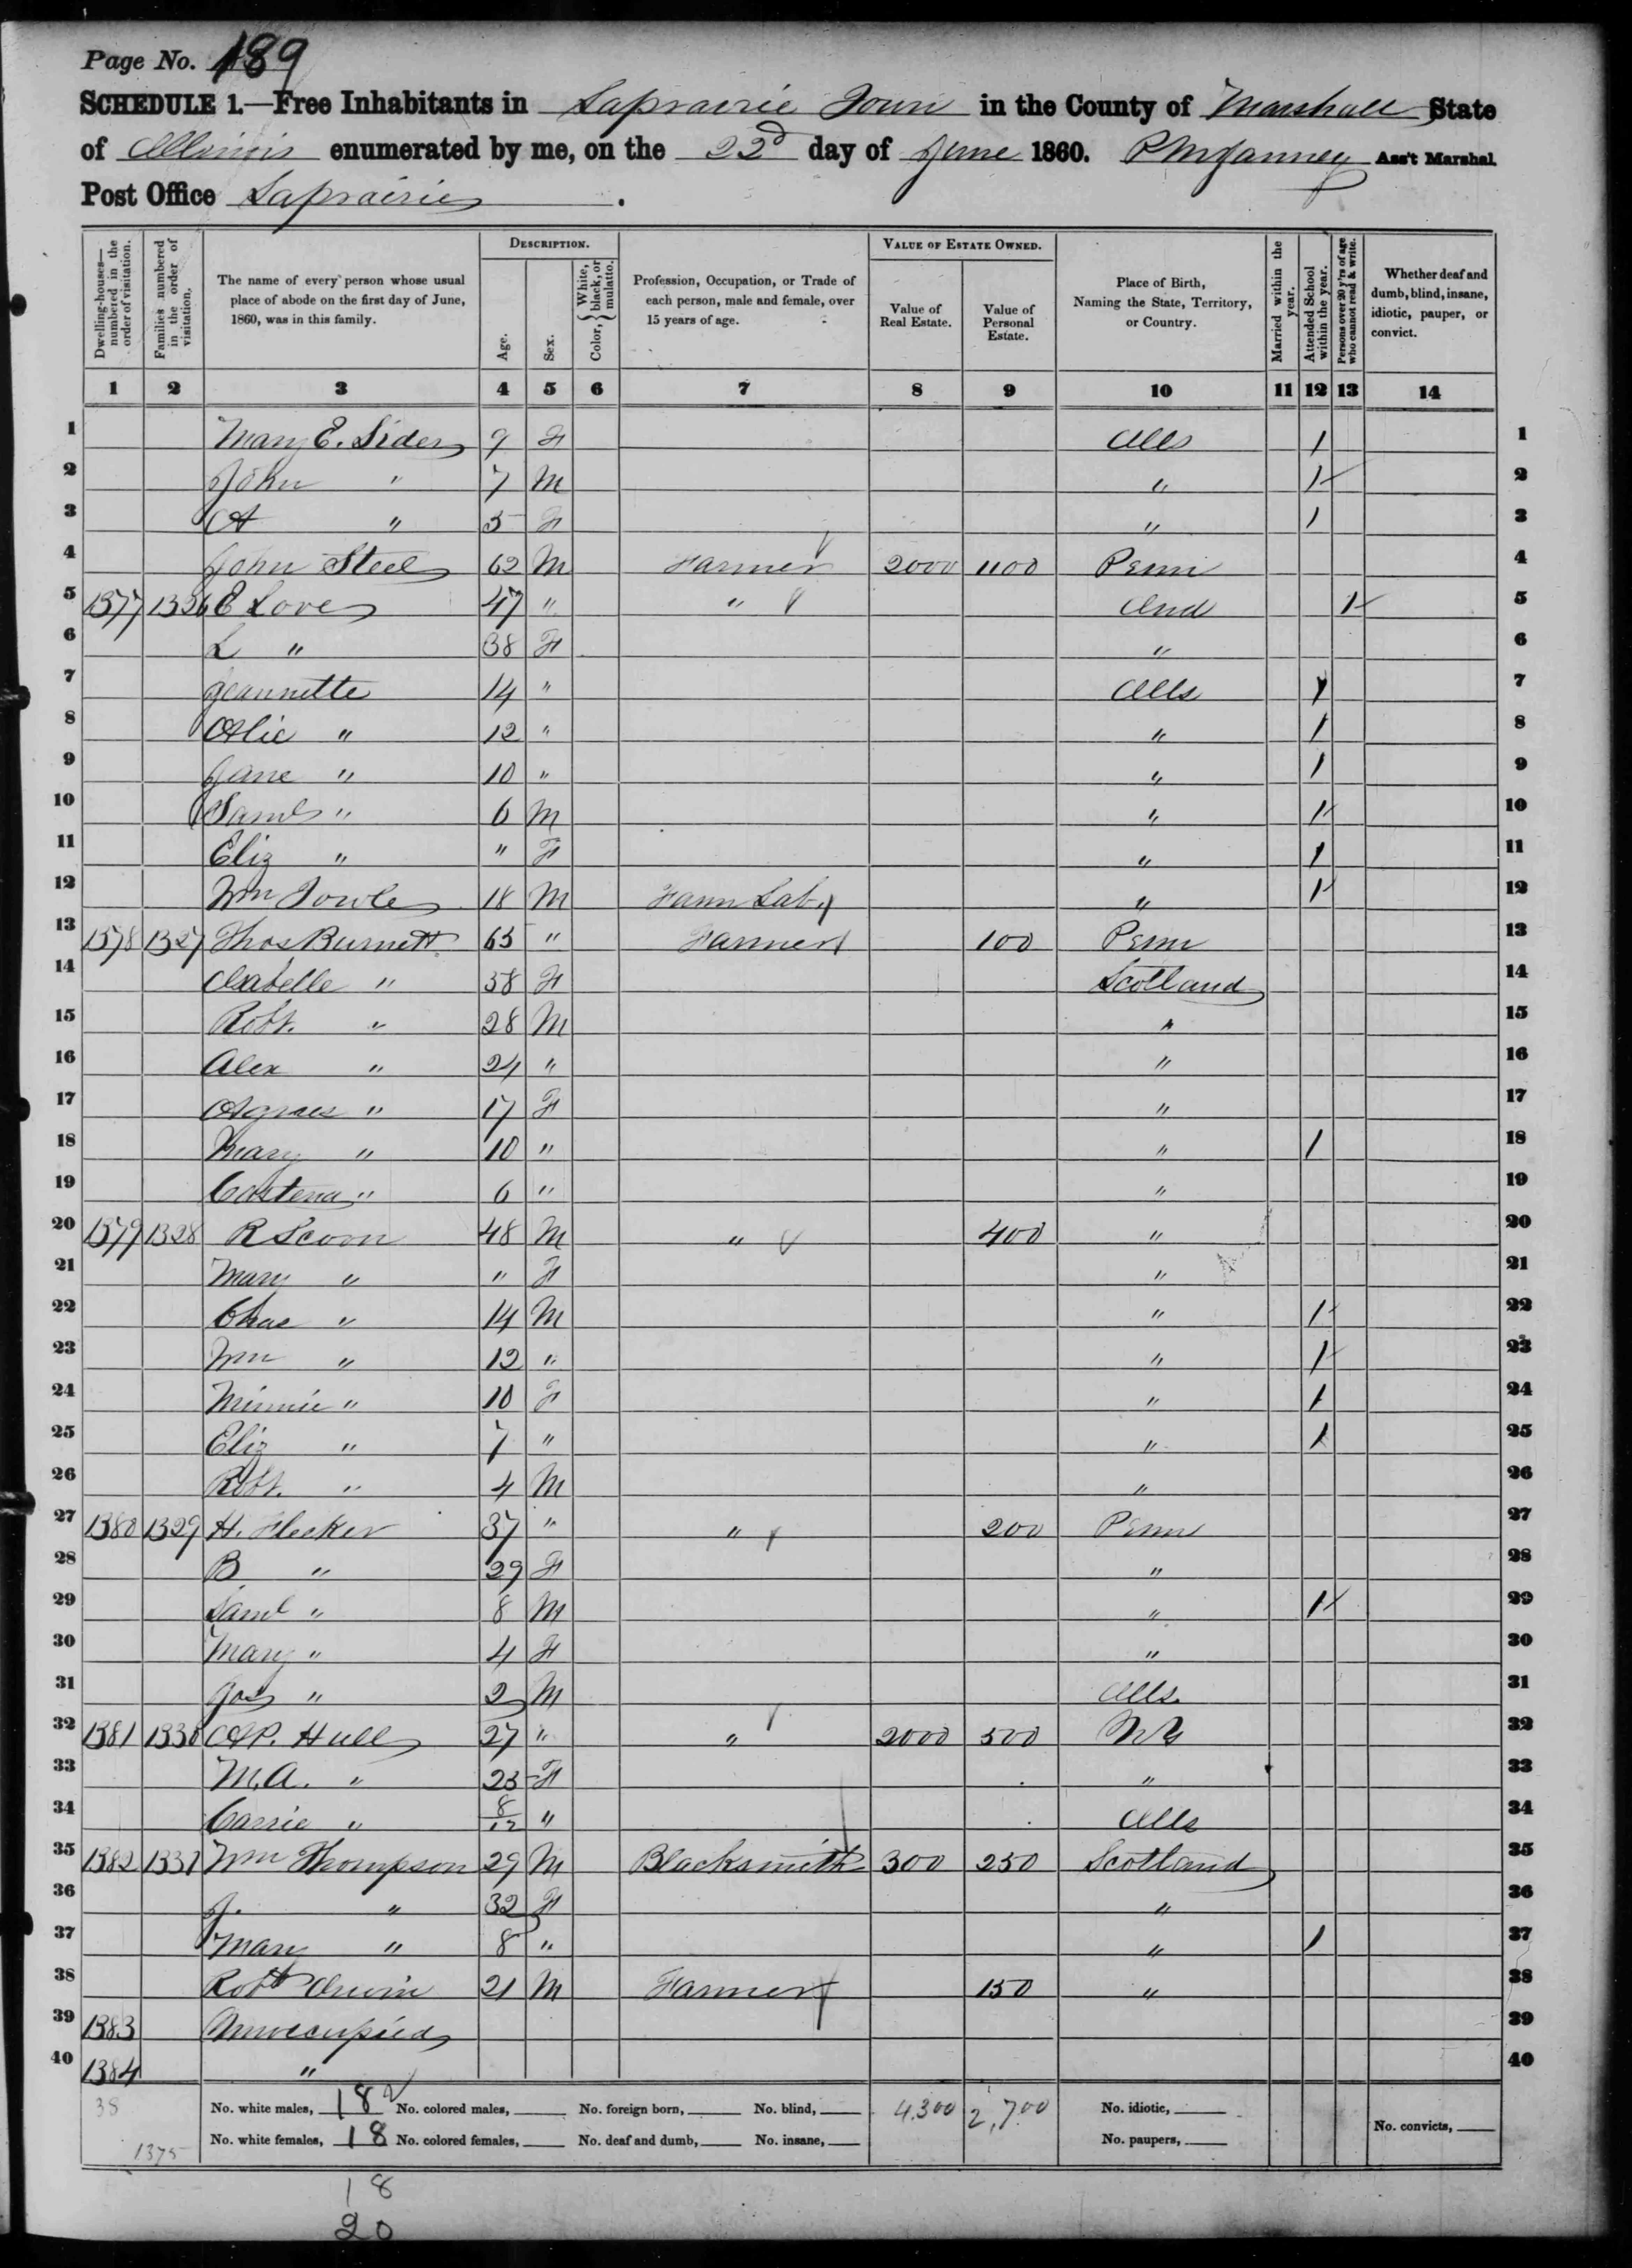 Page No. 189
SCHEDULE 1.—Free Inhabitants in Laprairie Town in the County of Marshall State
of Illinois enumerated by me, on the 22d day of June 1860. Ass't Marshal.
Post Office Laprairie.
Dwelling-houses—numbered in the order of visitation. Families numbered in the order of visitation. The name of every person whose usual place of abode on the first day of June, 1860, was in this family. DESCRIPTION. Age. Sex. Color, { White, black, or mulatto. Profession, Occupation, or Trade of each person, male and female, over 15 years of age. VALUE OF ESTATE OWNED. Value of Real Estate. Value of Personal Estate. Place of Birth, Naming the State, Territory, or Country. Married within the year. Attended School within the year. Persons over 20 y'rs of age who cannot read & write. Whether deaf and dumb, blind, insane, idiotic, pauper, or convict.
1 2 3 4 5 6 7 8 9 10 11 12 13 14
1 Mary E. Sider 9 F Ills 1 1
2 John " 7 M " 1 2
3 A " 5 F " 1 3
4 John Steel 62 M Farmer 2000 1100 Penn 4
5 1377 1326 E Love 47 " " Ind 1 5
6 L " 38 F " 6
7 Jeannette 14 " Ills 1 7
8 Alie " 12 " " 1 8
9 Jane " 10 " " 1 9
10 Saml " 6 M " 1 10
11 Eliz " " F " 1 11
12 Wm Towle 18 M Farm Lab. " 1 12
13 1378 1327 Thos Burnett 65 " Farmer 100 Penn 13
14 Isabelle " 58 F Scotland 14
15 Robt. " 28 M " 15
16 Alex " 24 " " 16
17 Agnes " 17 F " 17
18 Mary " 10 " " 1 18
19 " 6 " " 19
20 1379 1328 R Scoon 48 M " 400 " 20
21 Mary " " F " 21
22 Chas " 14 M " 1 22
23 Wm " 12 " " 1 23
24 Minnie " 10 F " 1 24
25 Eliz " 7 " " 1 25
26 Robt. " 4 M " 26
27 1380 1329 H. Flecker 37 " " 200 Penn 27
28 B " 29 F " 28
29 Saml " 8 M " 1 29
30 Mary " 4 F " 30
31 Jas " 2 M Ills. 31
32 1381 1330 A P. Hull 27 " " 2000 500 32
33 M. A. " 23 F " 33
34 Carrie " 8/12 " Ills 34
35 1382 1331 Wm Thompson 29 M Blacksmith 300 250 Scotland 35
36 J. " 32 F " 36
37 Mary " 8 " " 1 37
38 Robt Irwin 21 M Farmer 150 " 38
39 1383 Unoccupied 39
40 1384 " 40
38 No. white males, 18 No. colored males, No. foreign born, No. blind, 4,300 2,700 No. idiotic,
1375 No. white females, 18 No. colored females, No. deaf and dumb, No. insane, No. paupers, No. convicts,
18
20